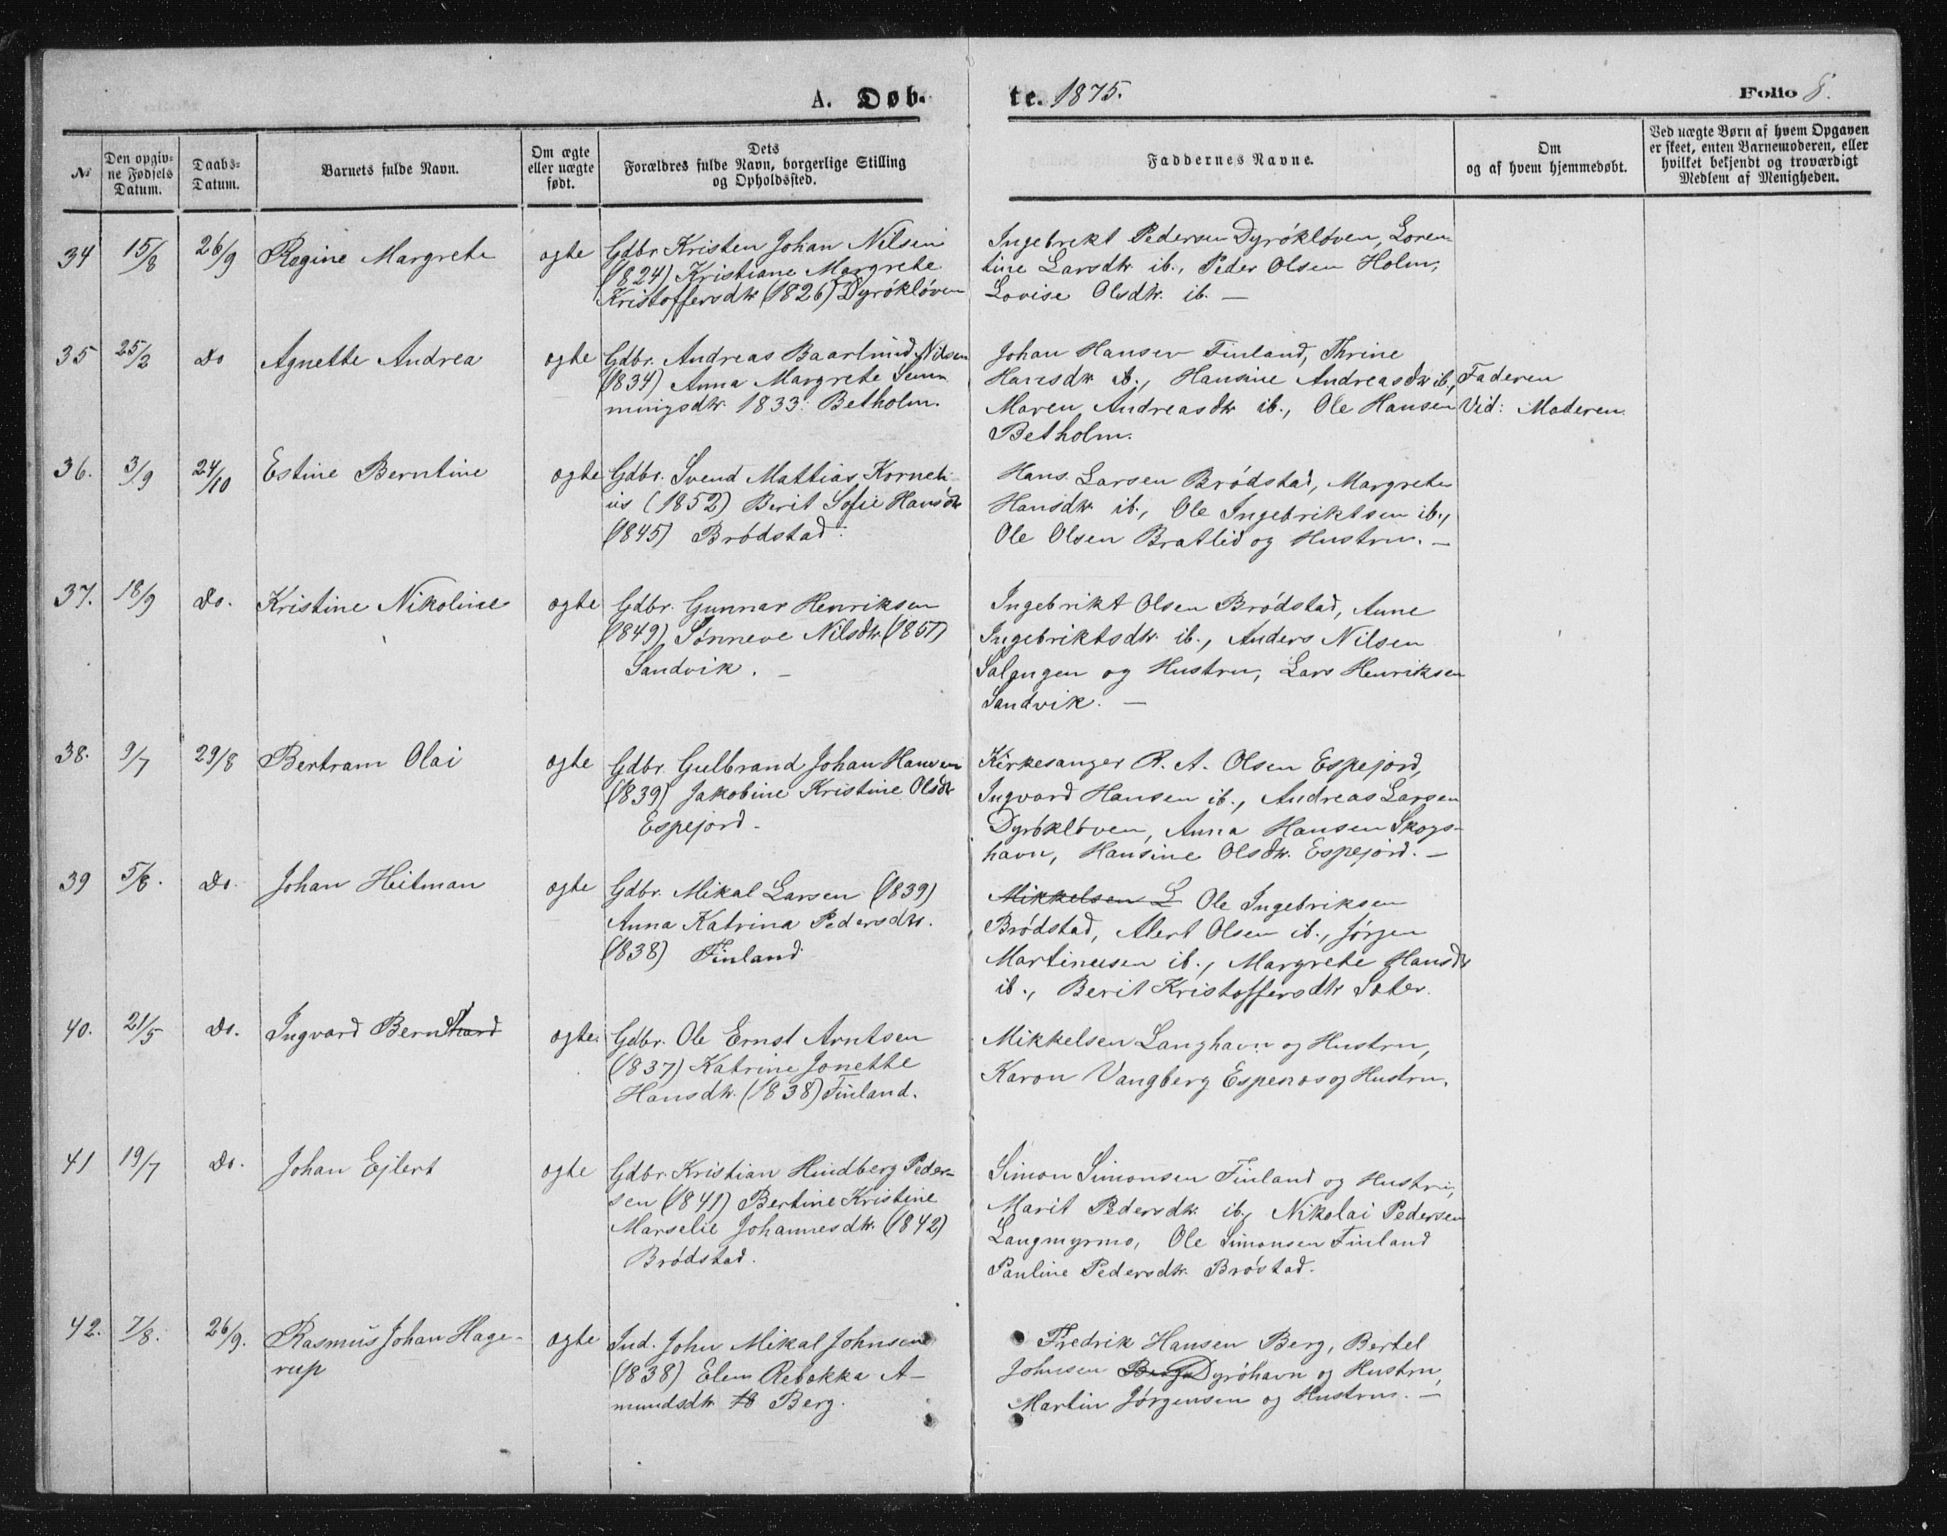 A. Døb-
te. 1875.
Folio 8.
№
Den opgiv-
ne Fødsels
Datum.
Daabs-
Datum.
Barnets fulde Navn.
Om ægte
eller uægte
født.
Dets
Forældres fulde Navn, borgerlige Stilling
og Opholdssted.
Faddernes Navne.
Om
og af hvem hjemmedøbt.
Ved uægte Børn af hvem Opgaven
er skeet, enten Barnemoderen, eller
hvilket bekjendt og troværdigt
Medlem af Menigheden.
34 15/8 26/9 Regine Margrete ægte
Gdbr Kristen Johan Nilsen
(1824) Kristiane Margrete
Kristoffersdtr (1826) Dyrökløven
Ingebrikt Pedersen Dyrökløven, Loren-
tine Larsdtr ib., Peder Olsen Holm,
Lovise Olsdtr. ib. —
35 25/2 Do Agnette Andrea ægte
Gdbr. Andreas Baarlund Nilsen
(1834) Anna Margrete Sem-
mingsdtr. 1833. Betholm.
Johan Hansen Finland, Thrine
Hansdtr ib., Hansine Andreasdtr ib.,
Maren Andreasdtr ib., Ole Hansen
Betholm.
Faderen
Vid: Moderen
36. 3/9 24/10 Estine Berntine ægte
Gdbr. Svend Mattias Korneli-
us (1852) Berit Sofie Hansdtr
(1845) Brødstad.
Hans Larsen Brødstad, Margrete
Hansdtr. ib., Ole Ingebriktsen ib.,
Ole Olsen Bratlid og Hustru. —
37. 18/9 Do. Kristine Nikoline ægte
Gdbr. Gunnar Henriksen
(1849), Sønneve Nilsdtr. (1851)
Sandvik. —
Ingebrikt Olsen Brødstad, Anne
Ingebriktsdtr. ib., Anders Nilsen
Salangen og Hustru, Lars Henriksen
Sandvik. —
38. 9/7 29/8 Bertram Olai ægte
Gdbr. Gulbrand Johan Hansen
(1839) Jakobine Kristine Olsdtr
Espejord.
Kirkesanger R. A. Olsen Espejord,
Ingvard Hansen ib., Andreas Larsen
Dyrökløven, Anna Hansen Skogs-
havn, Hansine Olsdtr. Espejord. —
39 5/6. Do. Johan Heitman ægte
Gdbr. Mikal Larsen (1839)
Anna Katrina Pedersdtr.
(1838) Finland
Mikkelsen L Ole Ingebriksen
Brödstad, Alert Olsen ib., Jörgen
Martinusen ib., Margrete Hansdtr
ib., Berit Kristoffersdtr Sæter.
40. 21/5 Do. Ingvard Bernthard ægte.
Gdbr. Ole Ernst Arntsen
(1837) Katrine Jonette
Hansdtr. (1838) Finland.
Mikkelsen Langhavn og Hustru,
Karon Vangberg Espenæs og Hustru.
41 19/7 Do. Johan Ejlert ægte
Gdbr. Kristian Hindberg Peder-
sen (1841) Bertine Kristine
Marselie Johannesdtr. (1842)
Brödstad.
Simon Simonsen Finland og Hustru,
Marit Pedersdtr ib., Nikolai Pedersen
Langmyrmo, Ole Simonsen Finland
Pauline Pedersdtr. Bröstad.
42. 7/8. 26/9. Rasmus Johan Hage-
rup
ægte
Ind. John Mikal Johnsen
(1838) Elen Rebekka A-
mundsdtr. 18 Berg.
Fredrik Hansen Berg, Bertel
Johnsen Berg Dyröhavn og Hustru,
Martin Jörgensen og Hustru. —